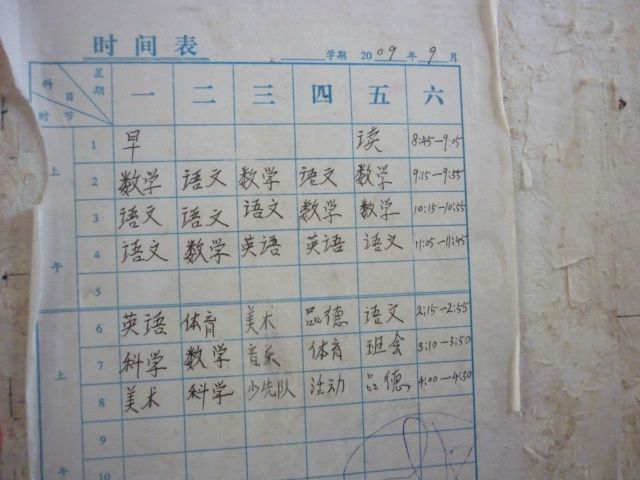 时间表 学期 2009年9月
科目 时节 星期 一 二 三 四 五 六
上午
1 早 读 8:45-9:05
2 数学 语文 数学 语文 数学 9:15-9:55
3 语文 语文 语文 数学 数学 10:15-10:55
4 语文 数学 英语 英语 语文 11:05-11:45
5
上午
6 英语 体育 美术 品德 语文 2:15-2:55
7 科学 数学 音乐 体育 班会 3:10-3:50
8 美术 科学 少先队 活动 品德 4:00-4:30
9
10